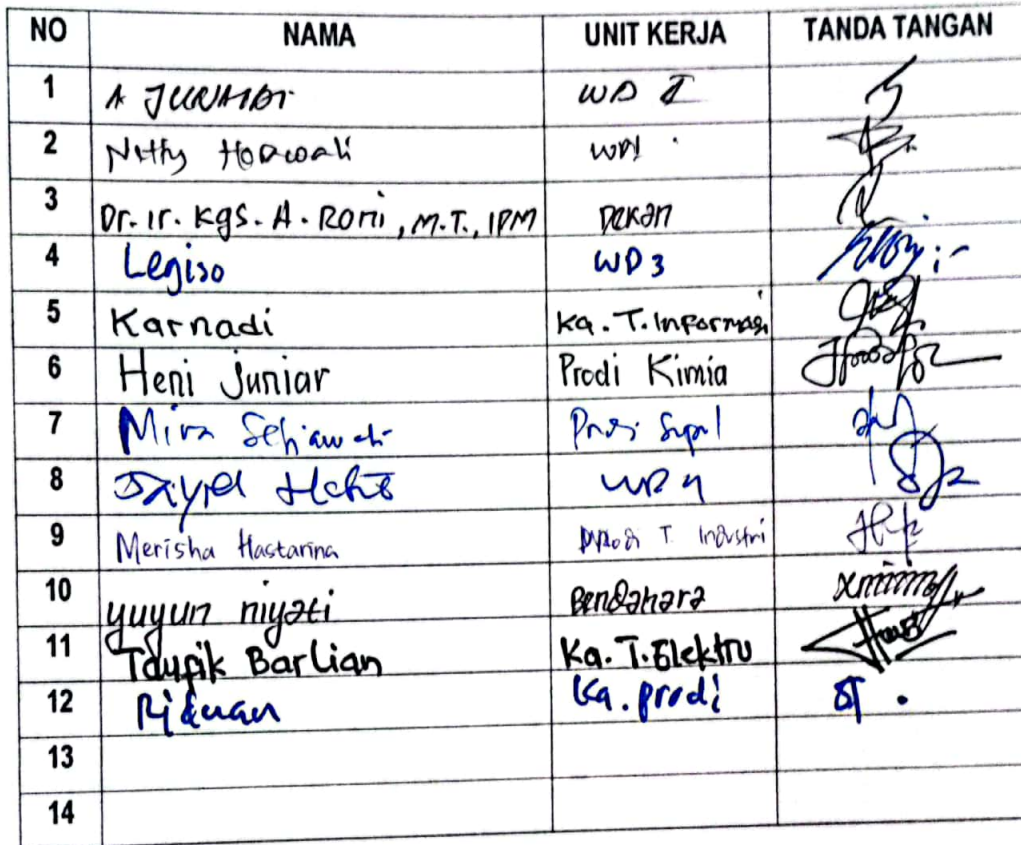 NO NAMA UNIT KERJA TANDA TANGAN
1 A JUNAIDI WD I
2 Netty
3 Dr. Ir. Kgs. A. Roni, M.T., IPM Dekan
4 Legiso WD 3
5 Karnadi Ka. T. Informasi
6 Heni Juniar Prodi Kimia
7 Mira Setiawati Prodi Sipil
8 WD 4
9 Merisha Hastarina T. Industri
10 yuyun niyati Bendahara
11 Taufik Barlian Ka. T. Elektro
12 Ridwan Ka. prodi
13
14